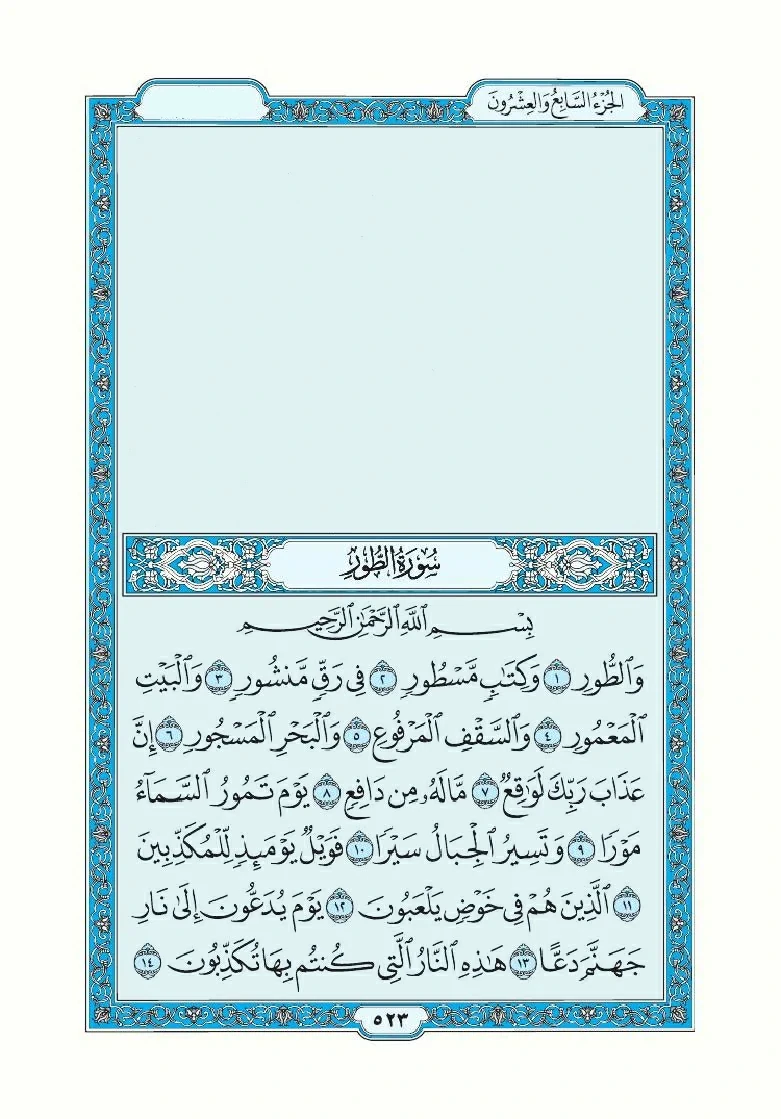 الجُزْءُ السَّابِعُ وَالعِشْرُونَ
سُورَةُ الطُّورِ
بِسْمِ ٱللَّهِ ٱلرَّحْمَٰنِ ٱلرَّحِيمِ
وَٱلطُّورِ ١ وَكِتَٰبٍ مَّسْطُورٍ ٢ فِى رَقٍّ مَّنشُورٍ ٣ وَٱلْبَيْتِ
ٱلْمَعْمُورِ ٤ وَٱلسَّقْفِ ٱلْمَرْفُوعِ ٥ وَٱلْبَحْرِ ٱلْمَسْجُورِ ٦ إِنَّ
عَذَابَ رَبِّكَ لَوَٰقِعٌ ٧ مَّا لَهُۥ مِن دَافِعٍ ٨ يَوْمَ تَمُورُ ٱلسَّمَآءُ
مَوْرًا ٩ وَتَسِيرُ ٱلْجِبَالُ سَيْرًا ١٠ فَوَيْلٌ يَوْمَئِذٍ لِّلْمُكَذِّبِينَ
١١ ٱلَّذِينَ هُمْ فِى خَوْضٍ يَلْعَبُونَ ١٢ يَوْمَ يُدَعُّونَ إِلَىٰ نَارِ
جَهَنَّمَ دَعًّا ١٣ هَٰذِهِ ٱلنَّارُ ٱلَّتِى كُنتُم بِهَا تُكَذِّبُونَ ١٤
٥٢٣